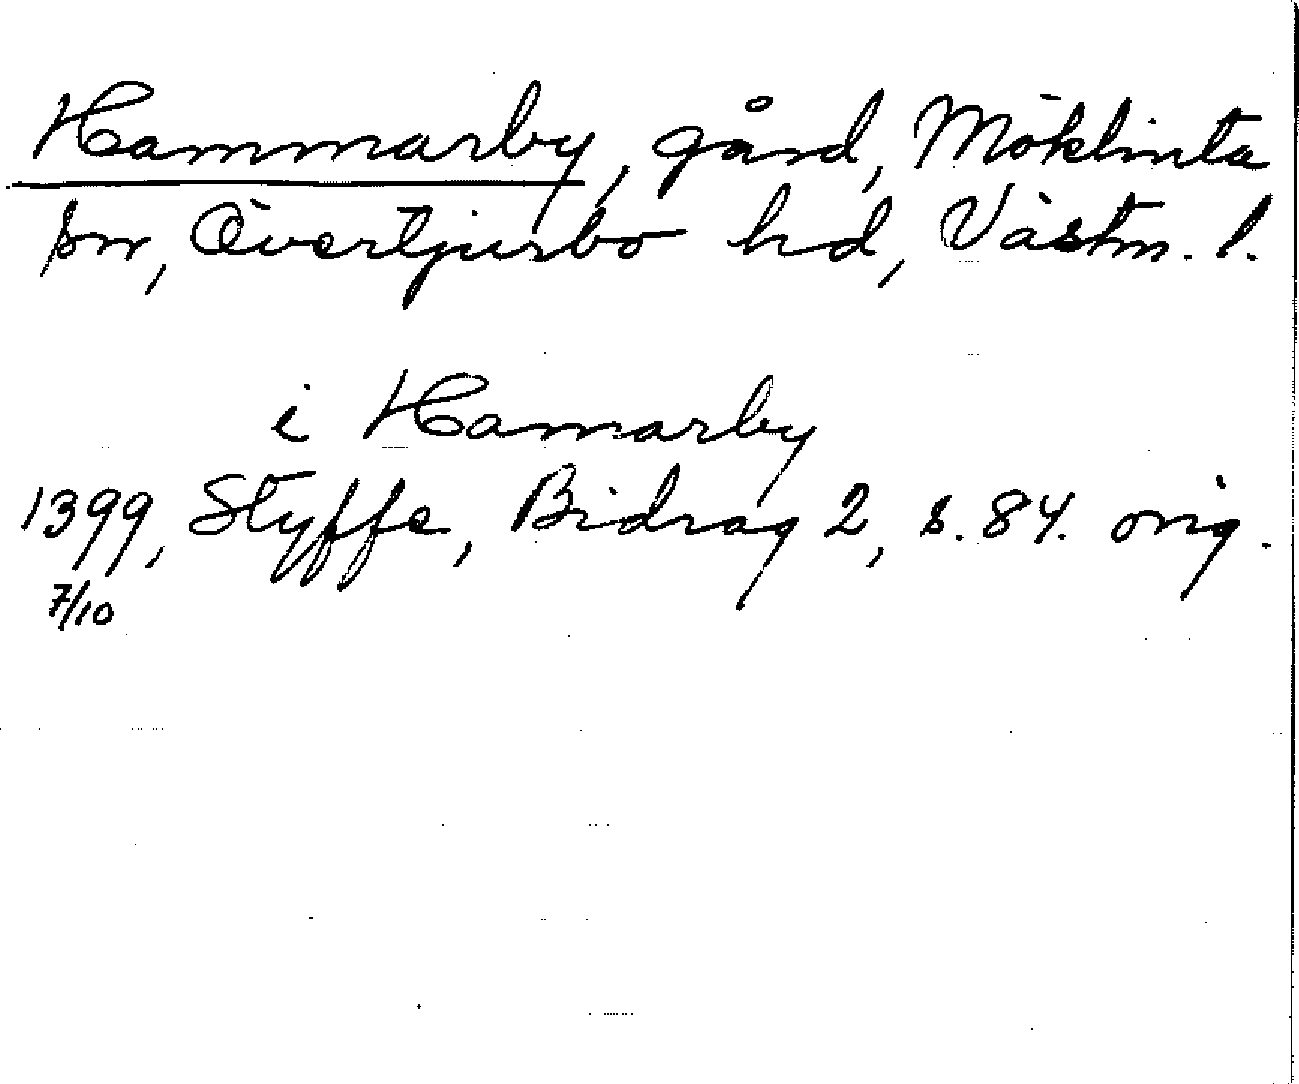 Hammarby, gård, Möklinta
sn, Övertjurbo hd, Västm. l.
i Hamarby
1399, Styffe, Bidrag 2, s. 84. orig.
7/10